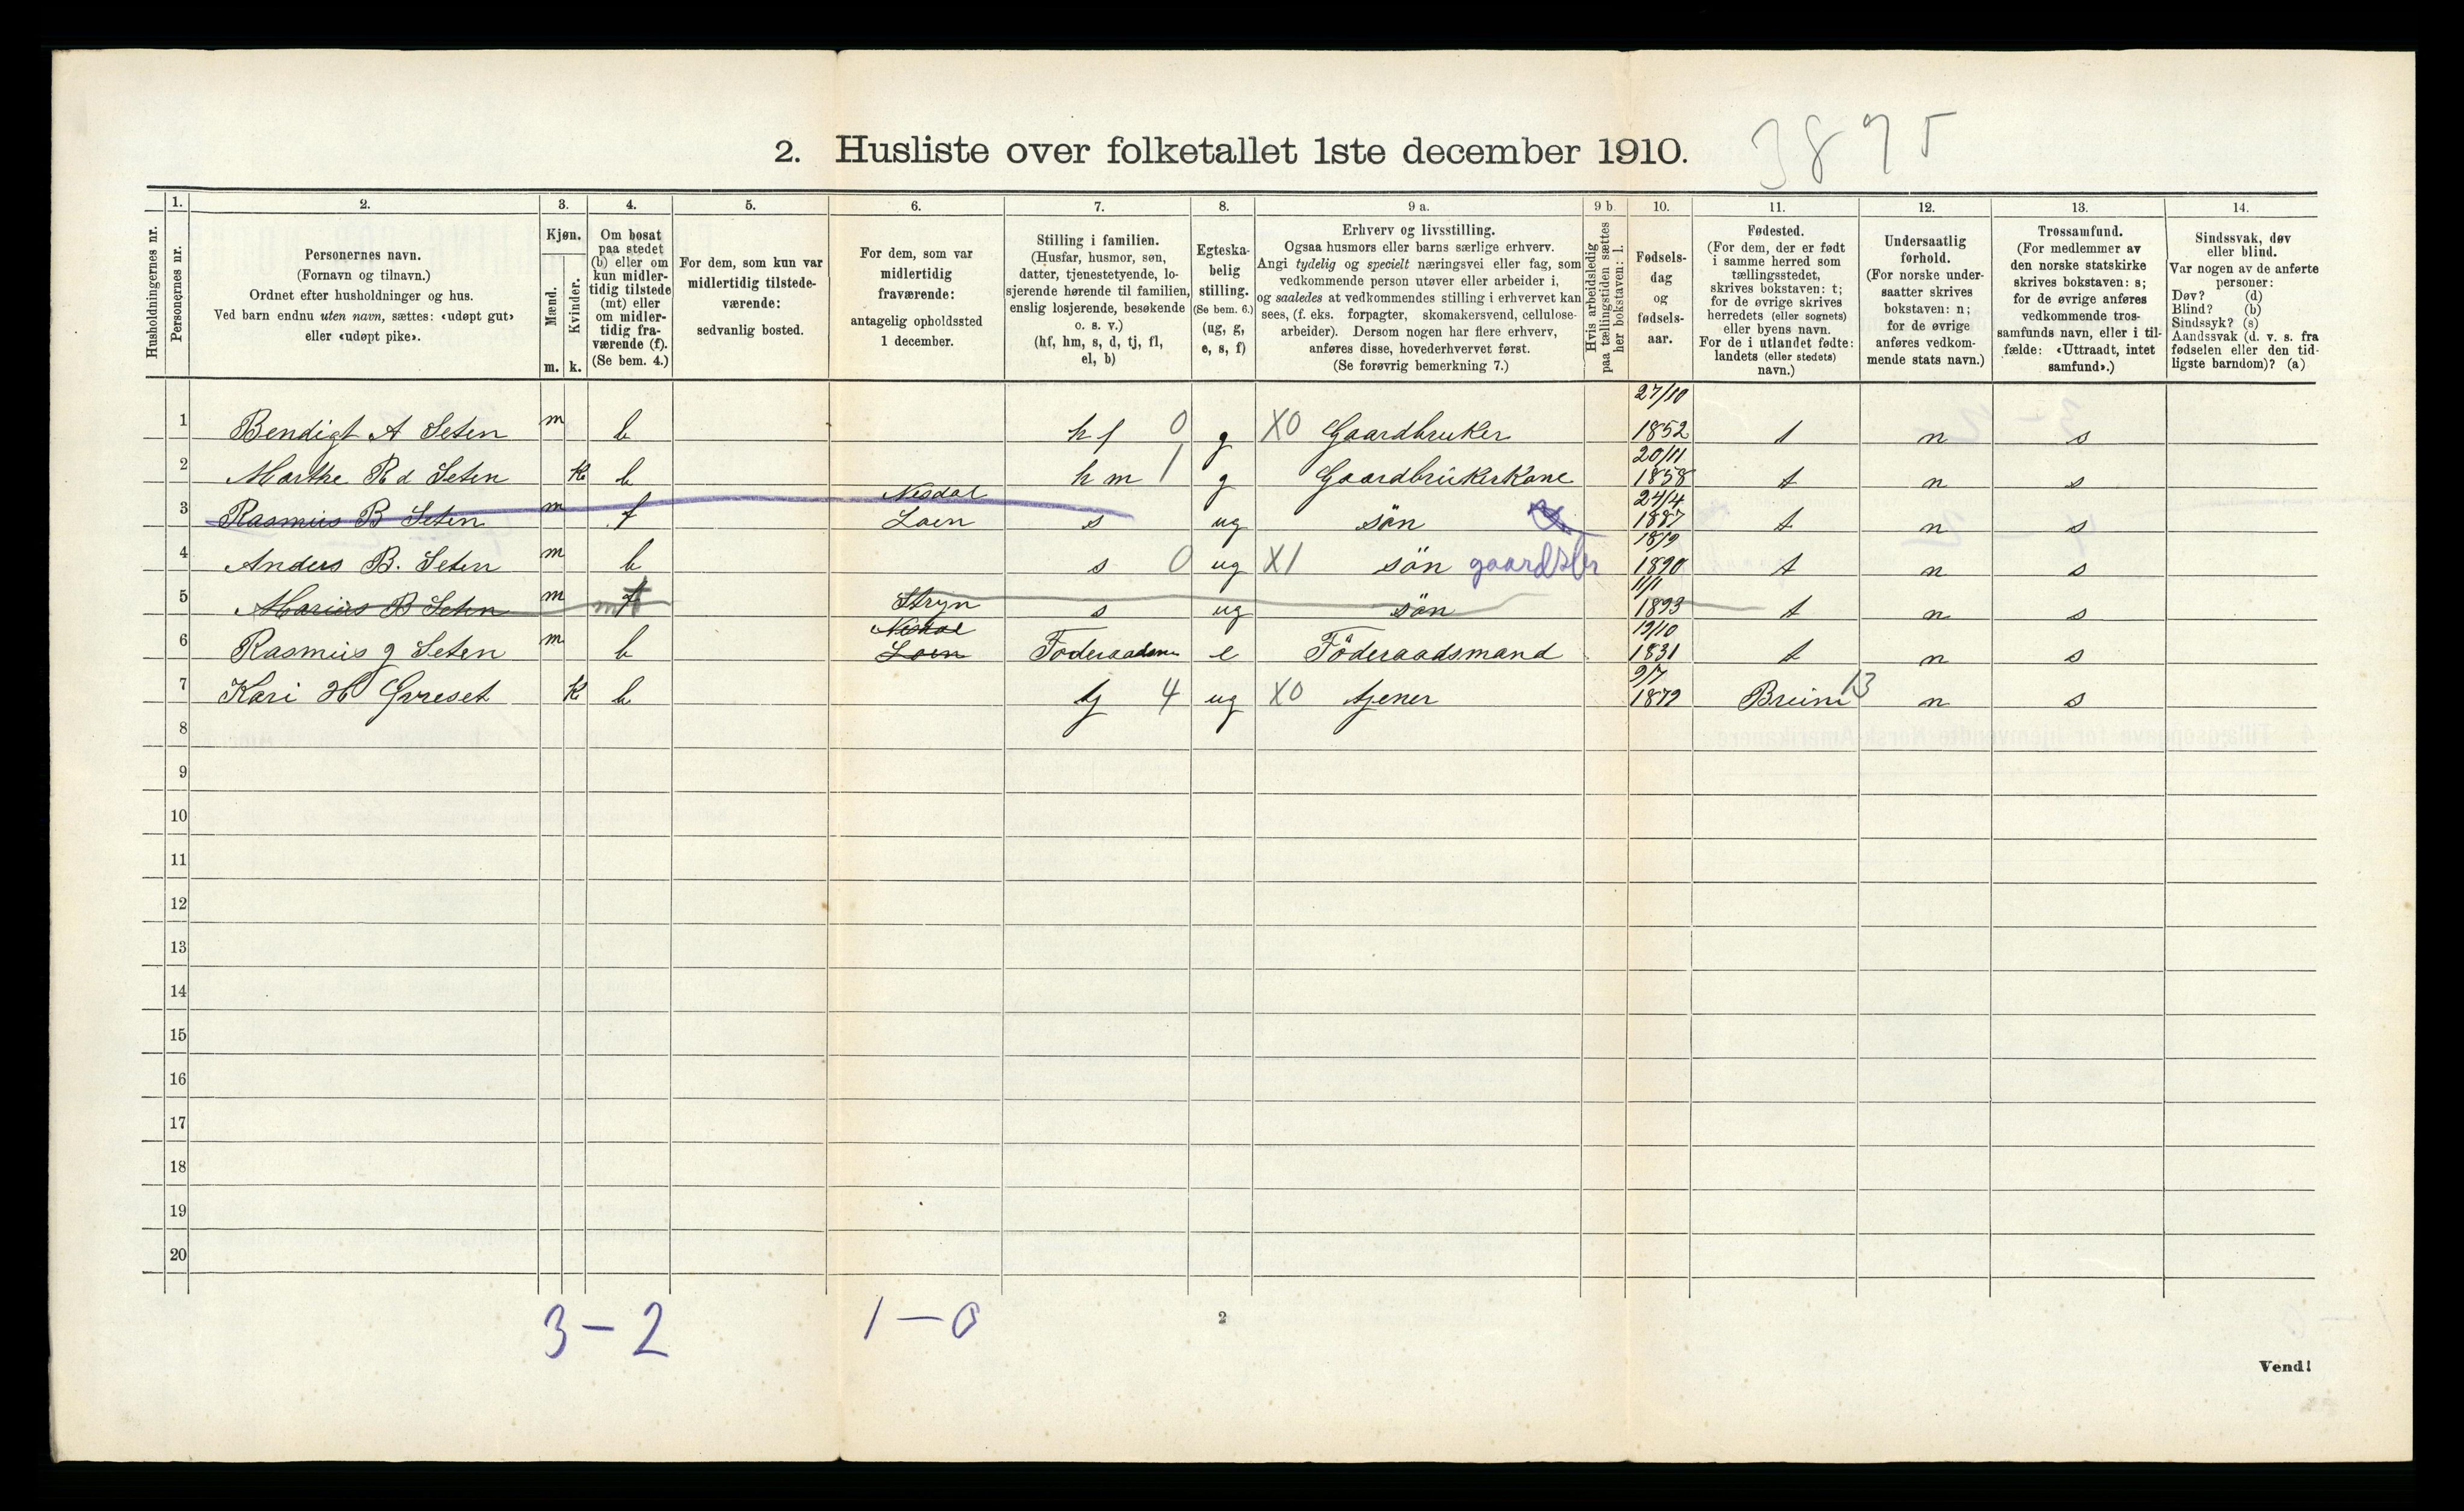 2. Husliste over folketallet 1ste december 1910. 3875
1. 2. 3. 4. 5. 6. 7. 8. 9 a. 9 b. 10. 11. 12. 13. 14.
Husholdningernes nr.
Personernes nr.
Personernes navn.
(Fornavn og tilnavn.)
Ordnet efter husholdninger og hus.
Ved barn endnu uten navn, sættes: «udøpt gut»
eller «udøpt pike».
Kjøn.
Mænd.
Kvinder.
m. k.
Om bosat
paa stedet
(b) eller om
kun midler-
tidig tilstede
(mt) eller
om midler-
tidig fra-
værende (f).
(Se bem. 4.)
For dem, som kun var
midlertidig tilstede-
værende:
sedvanlig bosted.
For dem, som var
midlertidig
fraværende:
antagelig opholdssted
1 december.
Stilling i familien.
(Husfar, husmor, søn,
datter, tjenestetyende, lo-
sjerende hørende til familien,
enslig losjerende, besøkende
o. s. v.)
(hf, hm, s, d, tj, fl,
el, b)
Egteska-
belig
stilling.
(Se bem. 6.)
(ug, g,
e, s, f)
Erhverv og livsstilling.
Ogsaa husmors eller barns særlige erhverv.
Angi tydelig og specielt næringsvei eller fag, som
vedkommende person utøver eller arbeider i,
og saaledes at vedkommendes stilling i erhvervet kan
sees, (f. eks. forpagter, skomakersvend, cellulose-
arbeider). Dersom nogen har flere erhverv,
anføres disse, hovederhvervet først.
(Se forøvrig bemerkning 7.)
Hvis arbeidsledig
paa tællingstiden sættes
her bokstaven: l.
Fødsels-
dag
og
fødsels-
aar.
Fødested.
(For dem, der er født
i samme herred som
tællingsstedet,
skrives bokstaven: t;
for de øvrige skrives
herredets (eller sognets)
eller byens navn.
For de i utlandet fødte:
landets (eller stedets)
navn.)
Undersaatlig
forhold.
(For norske under-
saatter skrives
bokstaven: n;
for de øvrige
anføres vedkom-
mende stats navn.)
Trossamfund.
(For medlemmer av
den norske statskirke
skrives bokstaven: s;
for de øvrige anføres
vedkommende tros-
samfunds navn, eller i til-
fælde: «Uttraadt, intet
samfund».)
Sindssvak, døv
eller blind.
Var nogen av de anførte
personer:
Døv? (d)
Blind? (b)
Sindssyk? (s)
Aandssvak (d. v. s. fra
fødselen eller den tid-
ligste barndom)? (a)
27/10
1 Bendigt A Seten m b hf 0 g X0 Gaardbruker 1852 t n s
20/11
2 Marthe R d Seten k b hm 1 g Gaardbrukerkone 1858 t n s
Nesdal 24/4
3 Rasmus B Seten m f Loen s ug sön 1887 t n s
18/9
4 Anders B. Seten m b s 0 ug X1 sön gaardsbr 1890 t n s
1/1
5 Marius B Seten m mt Stryn s ug sön 1893 t n s
Nesdal 19/10
6 Rasmus g Seten m b Loen Föderaadsm e Föderaadsmand 1831 t n s
9/7
7 Kari H Gvreset k b tj 4 ug X0 tjener 1879 Breim 13 n s
8
9
10
11
12
13
14
15
16
17
18
19
20
3 – 2 1 – 0
2
Vend!